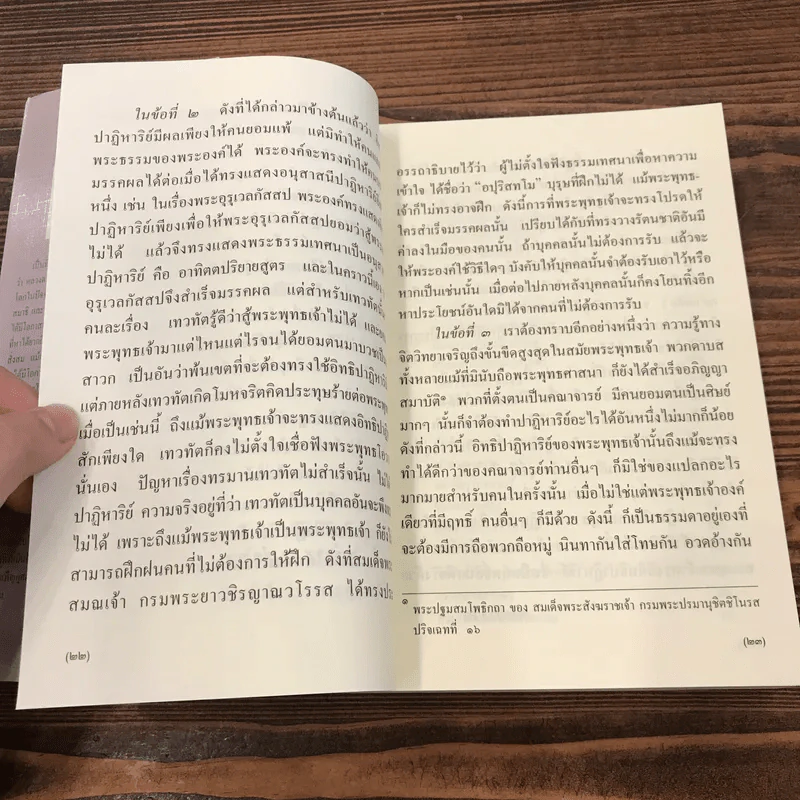 ในข้อที่ ๒ ดังที่ได้กล่าวมาข้างต้นแล้วว่า
ปาฏิหาริย์มีผลเพียงให้คนยอมแพ้ แต่มิทำให้คน
พระธรรมของพระองค์ได้ พระองค์จะทรงทำให้คน
มรรคผลได้ต่อเมื่อได้ทรงแสดงอนุสาสนีปาฏิหาริย์
หนึ่ง เช่น ในเรื่องพระอุรุเวลกัสสป พระองค์ทรงแสดง
ปาฏิหาริย์เพียงเพื่อให้พระอุรุเวลกัสสปยอมว่าสู้พระ
ไม่ได้ แล้วจึงทรงแสดงพระธรรมเทศนาเป็นอนุ
ปาฏิหาริย์ คือ อาทิตตปริยายสูตร และในคราวนี้เอง
อุรุเวลกัสสปจึงสำเร็จมรรคผล แต่สำหรับเทวทัตนั้น
คนละเรื่อง เทวทัตรู้ดีว่าสู้พระพุทธเจ้าไม่ได้ และ
พระพุทธเจ้ามาแต่ไหนแต่ไรจนได้ยอมตนมาบวชเป็น
สาวก เป็นอันว่าพ้นเขตที่จะต้องทรงใช้อิทธิปาฏิหาริ
แต่ภายหลังเทวทัตเกิดโมหจริตคิดประทุษร้ายต่อพระ
เมื่อเป็นเช่นนี้ ถึงแม้พระพุทธเจ้าจะทรงแสดงอิทธิปา
สักเพียงใด เทวทัตก็คงไม่ตั้งใจเชื่อฟังพระพุทธโอ
นั่นเอง ปัญหาเรื่องทรมานเทวทัตไม่สำเร็จนั้น
ปาฏิหาริย์ ความจริงอยู่ที่ว่า เทวทัตเป็นบุคคลอันจะพึง
ไม่ได้ เพราะถึงแม้พระพุทธเจ้าเป็นพระพุทธเจ้า ก็ยัง
สามารถฝึกฝนคนที่ไม่ต้องการให้ฝึก ดังที่สมเด็จ
สมณเจ้า กรมพระยาวชิรญาณวโรรส ได้ทรง
(๒๒)
อรรถาธิบายไว้ว่า ผู้ไม่ตั้งใจฟังธรรมเทศนาเพื่อหาความ
เข้าใจ ได้ชื่อว่า “อปุริสทโม” บุรุษที่ฝึกไม่ได้ แม้พระพุทธ-
เจ้าก็ไม่ทรงอาจฝึก ดังนี้การที่พระพุทธเจ้าจะทรงโปรดให้
ใครสำเร็จมรรคผลนั้น เปรียบได้กับที่ทรงวางรัตนชาติอันมี
ค่าลงในมือของคนนั้น ถ้าบุคคลนั้นไม่ต้องการรับ แล้วจะ
ให้พระองค์ใช้วิธีใดๆ บังคับให้บุคคลนั้นจำต้องรับเอาไว้หรือ
หากเป็นเช่นนั้น เมื่อต่อไปภายหลังบุคคลนั้นก็คงโยนทิ้งอีก
หาประโยชน์อันใดมิได้จากคนที่ไม่ต้องการรับ
ในข้อที่ ๓ เราต้องทราบอีกอย่างหนึ่งว่า ความรู้ทาง
จิตวิทยาเจริญถึงขั้นขีดสูงสุดในสมัยพระพุทธเจ้า พวกดาบส
ทั้งหลายแม้ที่มินับถือพระพุทธศาสนา ก็ยังได้สำเร็จอภิญญา
สมาบัติ๑ พวกที่ตั้งตนเป็นคณาจารย์ มีคนยอมตนเป็นศิษย์
มากๆ นั้นก็จำต้องทำปาฏิหาริย์อะไรได้อันหนึ่งไม่มากก็น้อย
ดังที่กล่าวนี้ อิทธิปาฏิหาริย์ของพระพุทธเจ้านั้นถึงแม้จะทรง
ทำได้ดีกว่าของคณาจารย์ท่านอื่นๆ ก็มิใช่ของแปลกอะไร
มากมายสำหรับคนในครั้งนั้น เมื่อไม่ใช่แต่พระพุทธเจ้าองค์
เดียวที่มีฤทธิ์ คนอื่นๆ ก็มีด้วย ดังนี้ ก็เป็นธรรมดาอยู่เองที่
จะต้องมีการถือพวกถือหมู่ นินทากันใส่โทษกัน อวดอ้างกัน
๑ พระปฐมสมโพธิกถา ของ สมเด็จพระสังฆราชเจ้า กรมพระปรมานุชิตชิโนรส
ปริจเฉทที่ ๑๖
(๒๓)